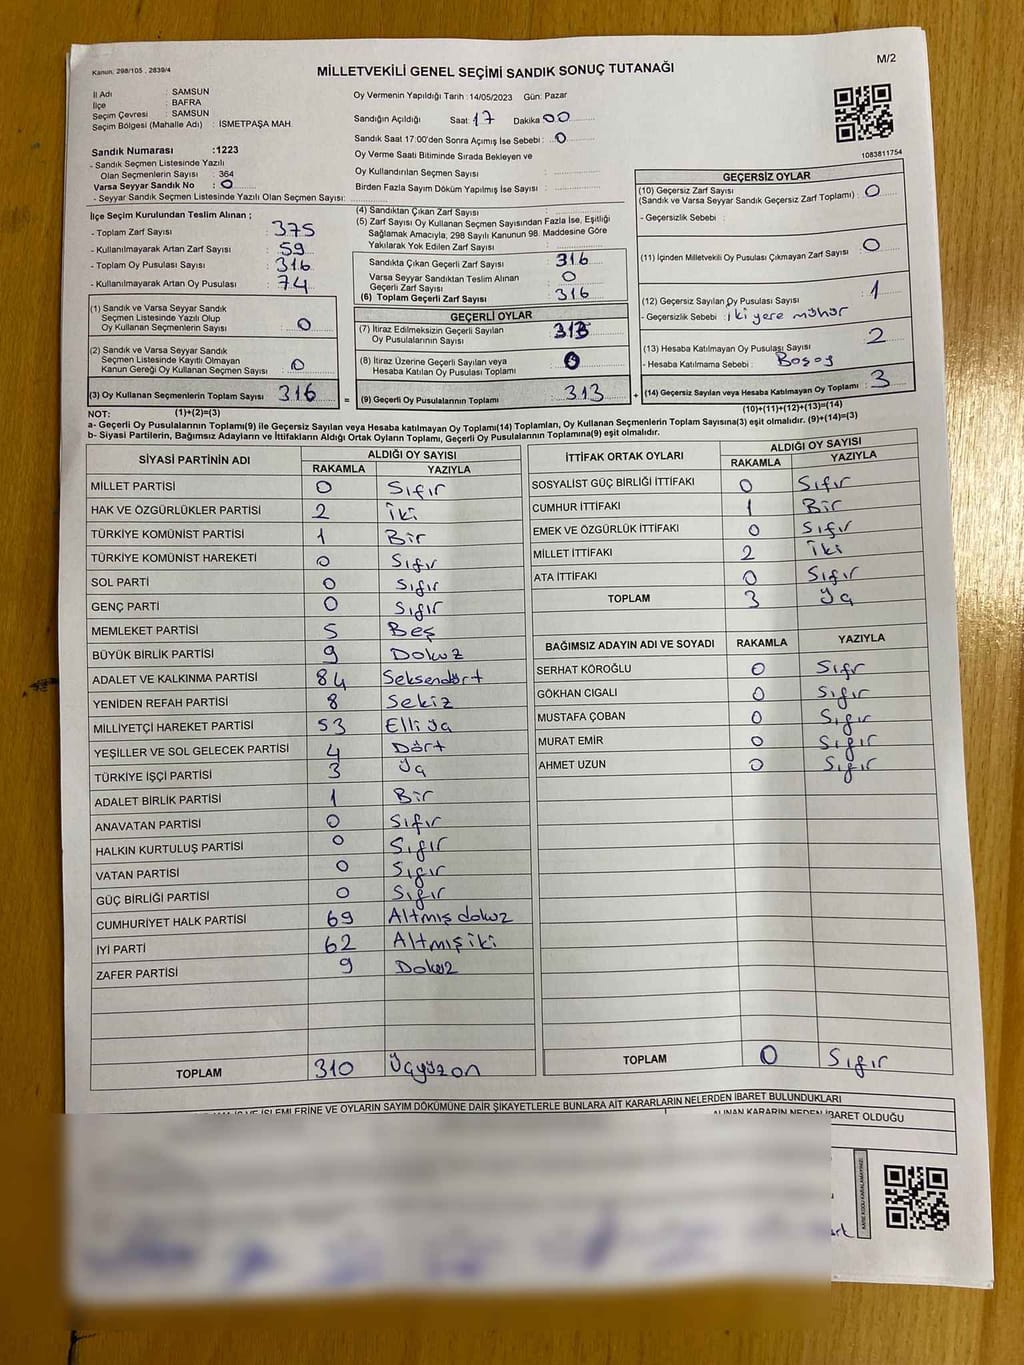 Kanun, 298/105 , 2839/4
M/2
MİLLETVEKİLİ GENEL SEÇİMİ SANDIK SONUÇ TUTANAĞI
İl Adı : SAMSUN
İlçe : BAFRA
Seçim Çevresi : SAMSUN
Seçim Bölgesi (Mahalle Adı) : İSMETPAŞA MAH.
Sandık Numarası :1223
- Sandık Seçmen Listesinde Yazılı
Olan Seçmenlerin Sayısı : 364
Varsa Seyyar Sandık No : 0
- Seyyar Sandık Seçmen Listesinde Yazılı Olan Seçmen Sayısı:
Oy Vermenin Yapıldığı Tarih :14/05/2023 Gün: Pazar
Sandığın Açıldığı Saat 17 Dakika 00
Sandık Saat 17:00'den Sonra Açımış İse Sebebi : 0
Oy Verme Saati Bitiminde Sırada Bekleyen ve
Oy Kullandırılan Seçmen Sayısı :
Birden Fazla Sayım Döküm Yapılmış İse Sayısı :
1083811754
İlçe Seçim Kurulundan Teslim Alınan ;
- Toplam Zarf Sayısı : 375
- Kullanılmayarak Artan Zarf Sayısı : 59
- Toplam Oy Pusulası Sayısı : 316
- Kullanılmayarak Artan Oy Pusulası : 74
(1) Sandık ve Varsa Seyyar Sandık
Seçmen Listesinde Yazılı Olup
Oy Kullanan Seçmenlerin Sayısı : 0
(2) Sandık ve Varsa Seyyar Sandık
Seçmen Listesinde Kayıtlı Olmayan
Kanun Gereği Oy Kullanan Seçmen Sayısı : 0
(3) Oy Kullanan Seçmenlerin Toplam Sayısı 316
(4) Sandıktan Çıkan Zarf Sayısı :
(5) Zarf Sayısı Oy Kullanan Seçmen Sayısından Fazla İse, Eşitliği
Sağlamak Amacıyla, 298 Sayılı Kanunun 98. Maddesine Göre
Yakılarak Yok Edilen Zarf Sayısı :
Sandıkta Çıkan Geçerli Zarf Sayısı : 316
Varsa Seyyar Sandıktan Teslim Alınan
Geçerli Zarf Sayısı : 0
(6) Toplam Geçerli Zarf Sayısı : 316
GEÇERLİ OYLAR
(7) İtiraz Edilmeksizin Geçerli Sayılan
Oy Pusulalarının Sayısı : 313
(8) İtiraz Üzerine Geçerli Sayılan veya
Hesaba Katılan Oy Pusulası Toplamı : 0
= (9) Geçerli Oy Pusulalarının Toplamı : 313
GEÇERSİZ OYLAR
(10) Geçersiz Zarf Sayısı
(Sandık ve Varsa Seyyar Sandık Geçersiz Zarf Toplamı) : 0
- Geçersizlik Sebebi :
(11) İçinden Milletvekili Oy Pusulası Çıkmayan Zarf Sayısı : 0
(12) Geçersiz Sayılan Oy Pusulası Sayısı : 1
- Geçersizlik Sebebi : İki yere mühür
(13) Hesaba Katılmayan Oy Pusulası Sayısı : 2
- Hesaba Katılmama Sebebi :
+ (14) Geçersiz Sayılan veya Hesaba Katılmayan Oy Toplamı : 3
NOT: (1)+(2)=(3)
(10)+(11)+(12)+(13)=(14)
a- Geçerli Oy Pusulalarının Toplamı(9) ile Geçersiz Sayılan veya Hesaba katılmayan Oy Toplamı(14) Toplamları, Oy Kullanan Seçmenlerin Toplam Sayısına(3) eşit olmalıdır. (9)+(14)=(3)
b- Siyasi Partilerin, Bağımsız Adayların ve İttifakların Aldığı Ortak Oyların Toplamı, Geçerli Oy Pusulalarının Toplamına(9) eşit olmalıdır.
SİYASİ PARTİNİN ADI ALDIĞI OY SAYISI
RAKAMLA YAZIYLA
MİLLET PARTİSİ 0 Sıfır
HAK VE ÖZGÜRLÜKLER PARTİSİ 2 İki
TÜRKİYE KOMÜNİST PARTİSİ 1 Bir
TÜRKİYE KOMÜNİST HAREKETİ 0 Sıfır
SOL PARTİ 0 Sıfır
GENÇ PARTİ 0 Sıfır
MEMLEKET PARTİSİ 5 Beş
BÜYÜK BİRLİK PARTİSİ 9 Dokuz
ADALET VE KALKINMA PARTİSİ 84 Seksendört
YENİDEN REFAH PARTİSİ 8 Sekiz
MİLLİYETÇİ HAREKET PARTİSİ 53 Elli üç
YEŞİLLER VE SOL GELECEK PARTİSİ 4 Dört
TÜRKİYE İŞÇİ PARTİSİ 3 Üç
ADALET BİRLİK PARTİSİ 1 Bir
ANAVATAN PARTİSİ 0 Sıfır
HALKIN KURTULUŞ PARTİSİ 0 Sıfır
VATAN PARTİSİ 0 Sıfır
GÜÇ BİRLİĞİ PARTİSİ 0 Sıfır
CUMHURİYET HALK PARTİSİ 69 Altmış dokuz
İYİ PARTİ 62 Altmış iki
ZAFER PARTİSİ 9 Dokuz
TOPLAM 310 Üçyüzon
İTTİFAK ORTAK OYLARI ALDIĞI OY SAYISI
RAKAMLA YAZIYLA
SOSYALİST GÜÇ BİRLİĞİ İTTİFAKI 0 Sıfır
CUMHUR İTTİFAKI 1 Bir
EMEK VE ÖZGÜRLÜK İTTİFAKI 0 Sıfır
MİLLET İTTİFAKI 2 İki
ATA İTTİFAKI 0 Sıfır
TOPLAM 3 Üç
BAĞIMSIZ ADAYIN ADI VE SOYADI RAKAMLA YAZIYLA
SERHAT KÖROĞLU 0 Sıfır
GÖKHAN CIGALI 0 Sıfır
MUSTAFA ÇOBAN 0 Sıfır
MURAT EMİR 0 Sıfır
AHMET UZUN 0 Sıfır
TOPLAM 0 Sıfır
İŞLEMLERİNE VE OYLARIN SAYIM DÖKÜMÜNE DAİR ŞİKAYETLERLE BUNLARA AİT KARARLARIN NELERDEN İBARET BULUNDUKLARI
ALINAN KARARIN NEDEN İBARET OLDUĞU